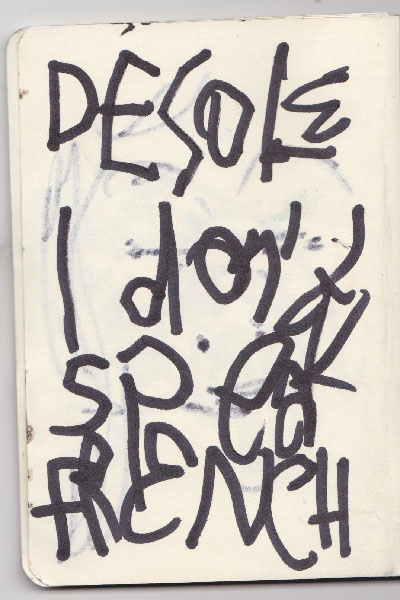 DÉSOLE
I don't
SPEAK
FRENCH